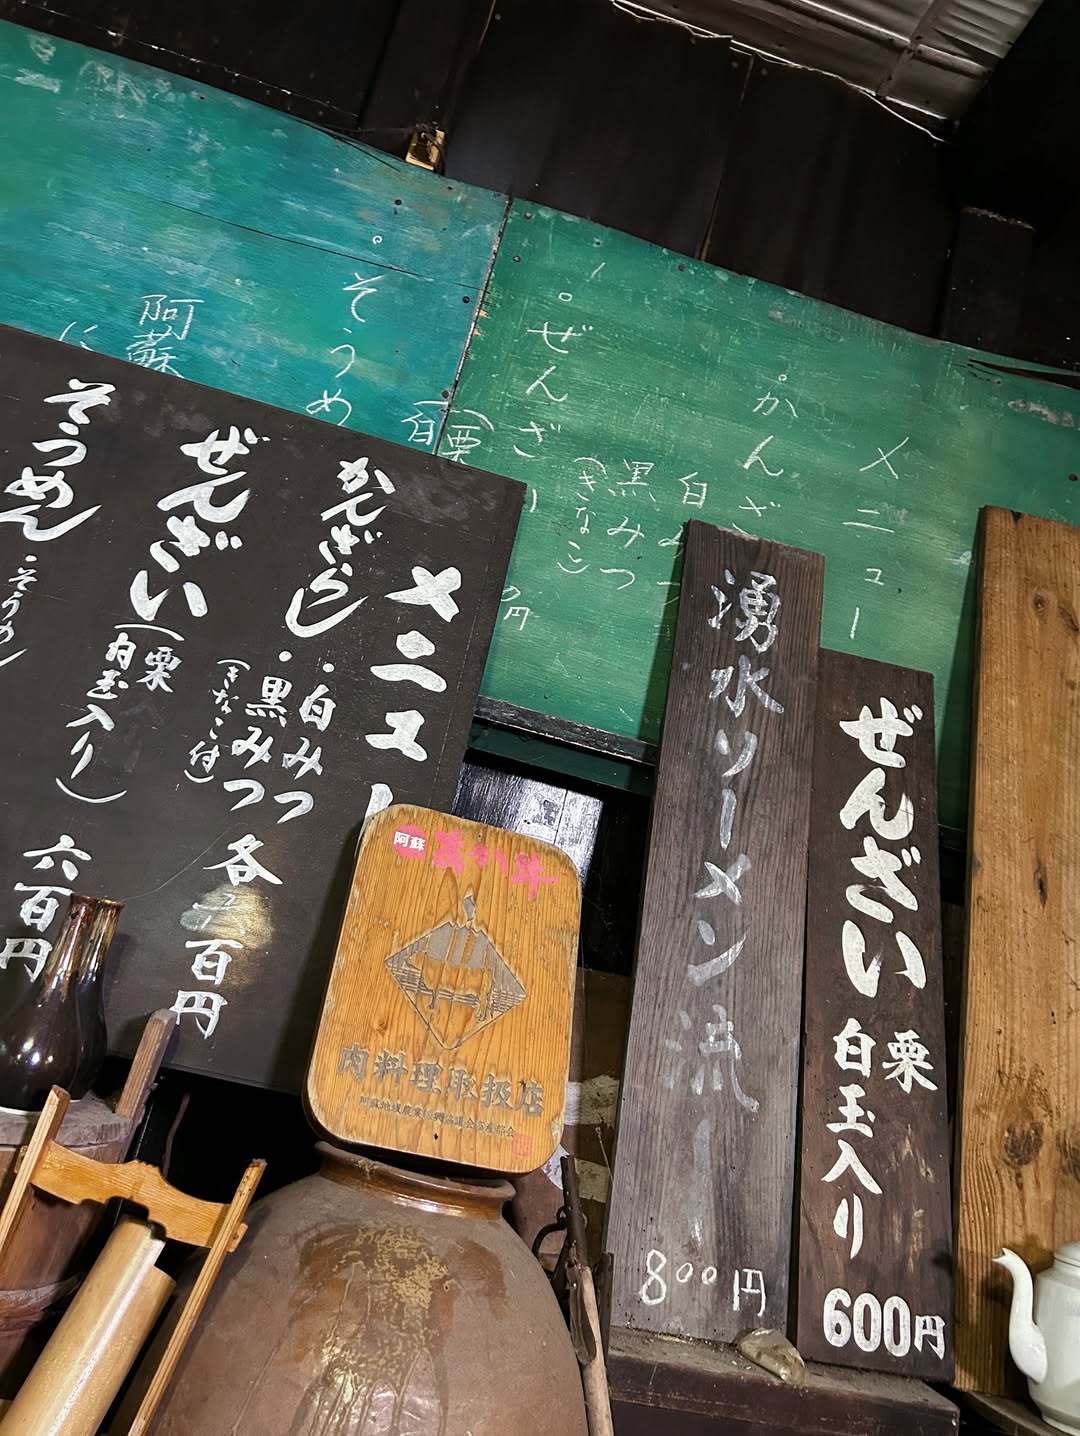 メニュー
・かんざ
白み
黒みつ
(きなこ
。ぜんざい
(栗
白
円
。そうめ
阿蘇
に
メニュー
かんざらし
・白みつ
・黒みつ
(きなこ付)
各六百円
ぜんざい
(栗
白玉入り)
六百円
そうめん
・そうめん
阿蘇
あか牛
肉料理取扱店
湧水ソーメン流し
800円
ぜんざい
栗
白玉入り
600円